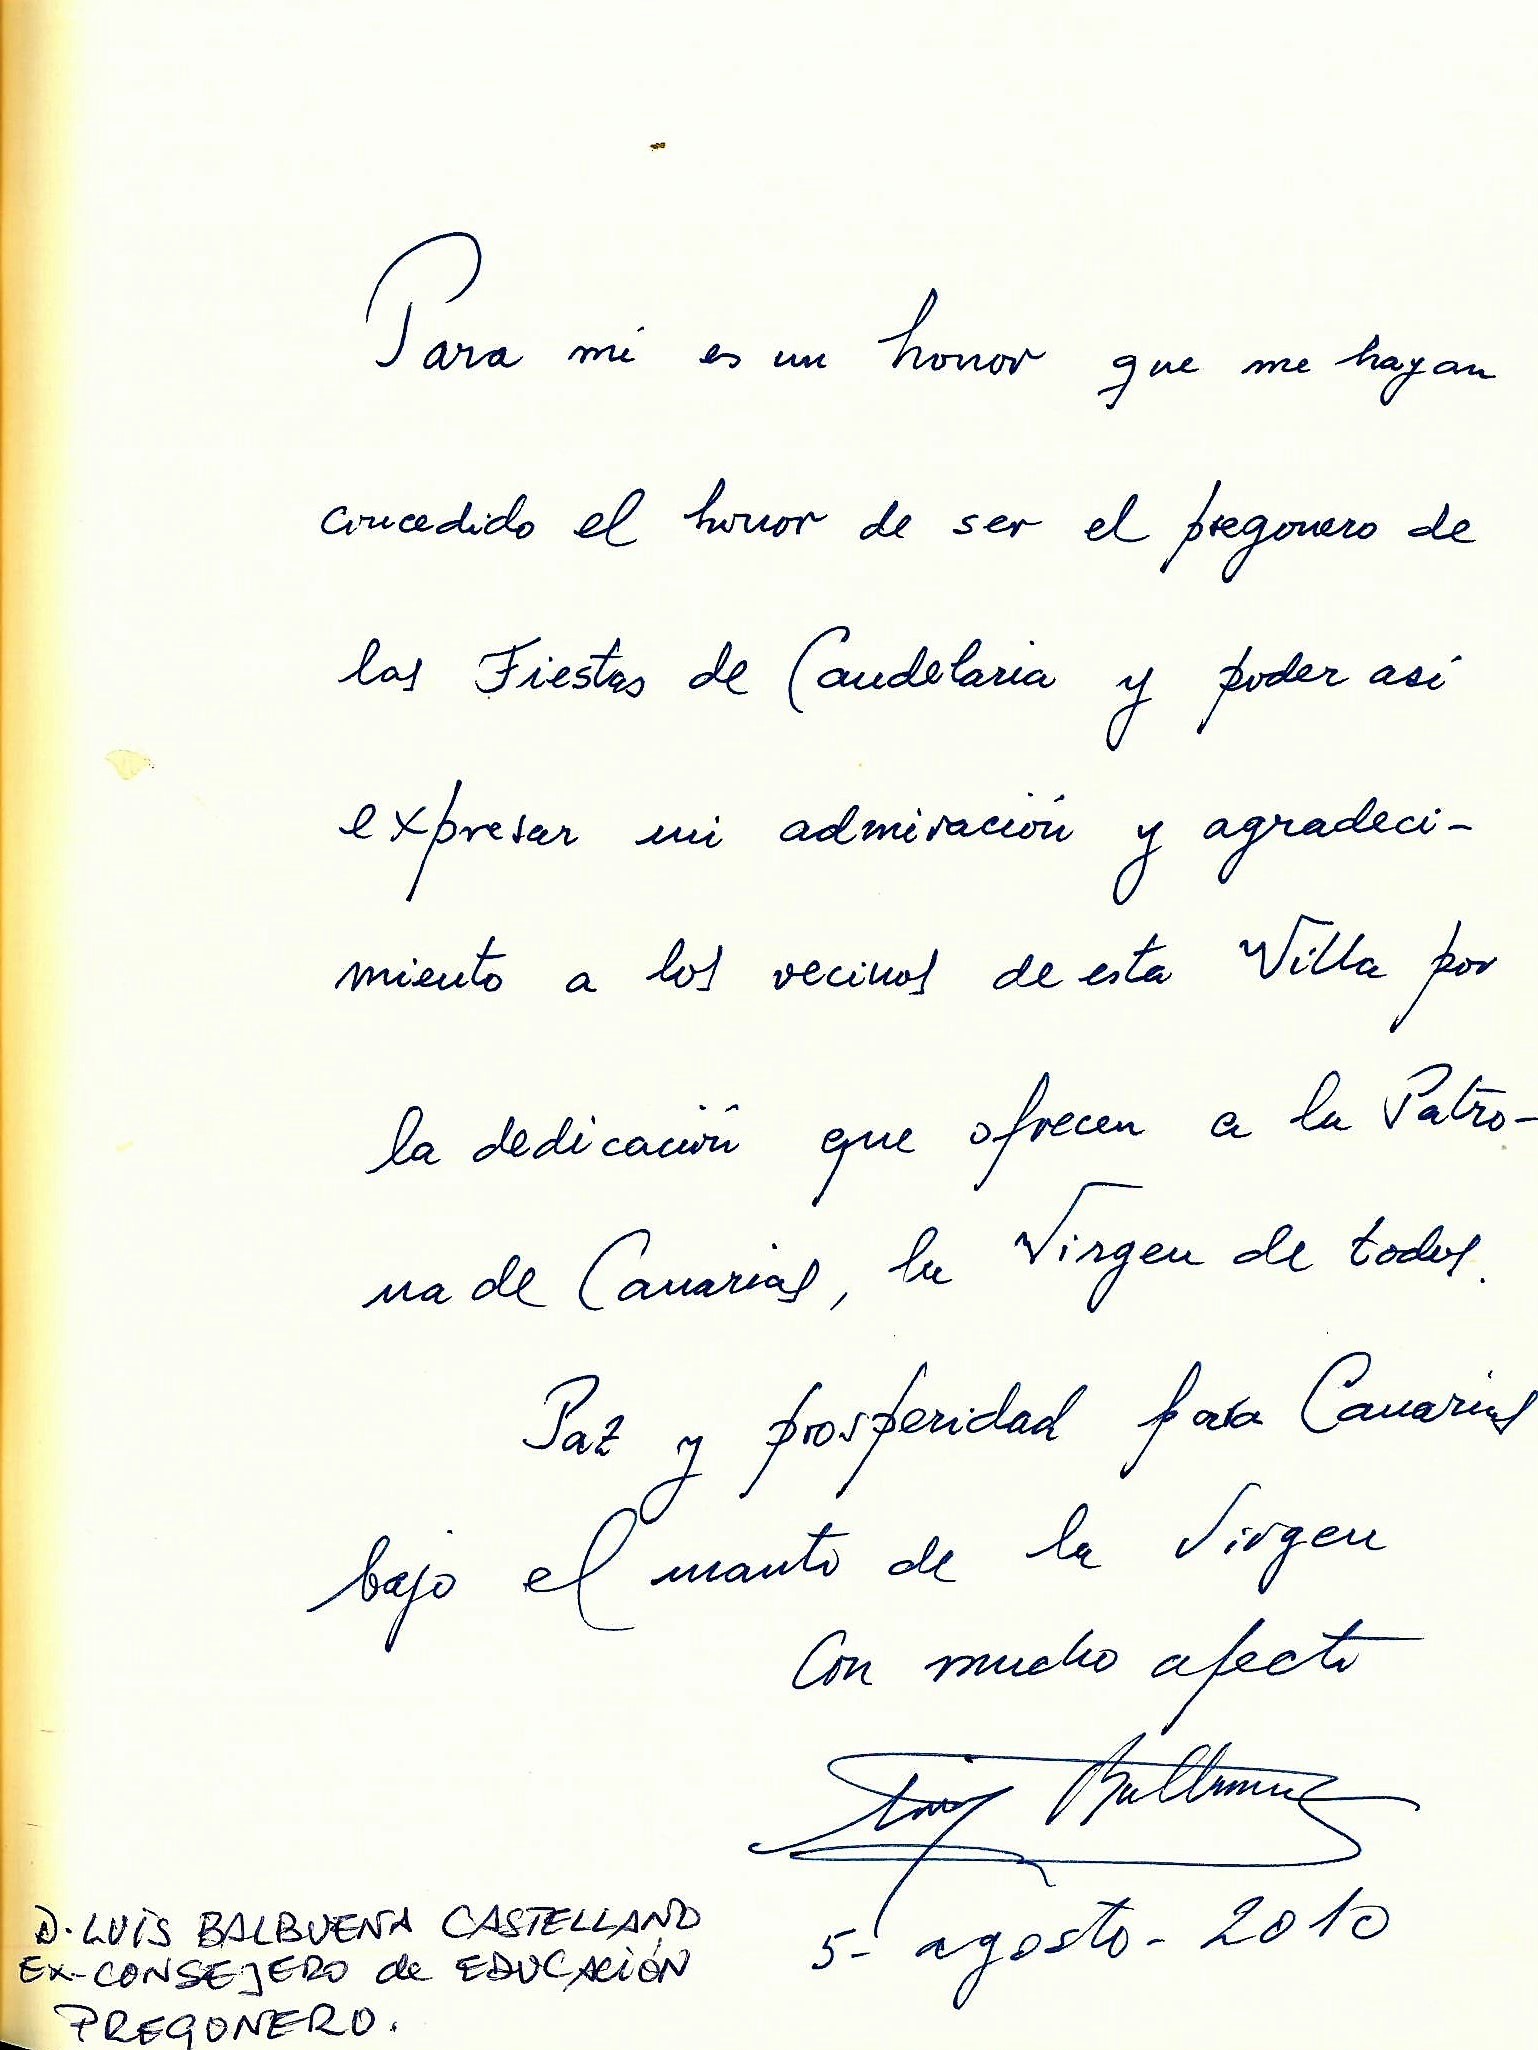 Para mí es un honor que me hayan
concedido el honor de ser el pregonero de
las Fiestas de Candelaria y poder así
expresar mi admiración y agradeci-
miento a los vecinos de esta Villa por
la dedicación que ofrecen a la Patro-
na de Canarias, la Virgen de todos.
Paz y prosperidad para Canarias
bajo el manto de la Virgen
Con mucho afecto
Luis Balbuena
5- agosto - 2010
D. LUÍS BALBUENA CASTELLANO
EX-CONSEJERO de EDUCACIÓN
PREGONERO.